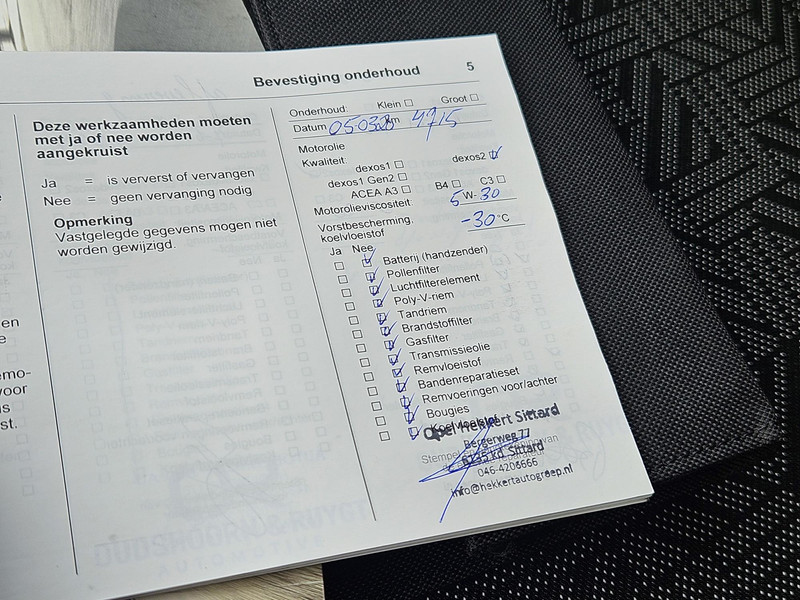 Bevestiging onderhoud 5
Deze werkzaamheden moeten
met ja of nee worden
aangekruist
Ja = is ververst of vervangen
Nee = geen vervanging nodig
Opmerking
Vastgelegde gegevens mogen niet
worden gewijzigd.
Onderhoud: Klein Groot
Datum km 4715
Motorolie
Kwaliteit: dexos1 dexos2
dexos1 Gen2
ACEA A3 B4 C3
Motorolieviscositeit 5 W- 30
Vorstbescherming,
koelvloeistof -30 °C
Ja Nee
Batterij (handzender)
Pollenfilter
Luchtfilterelement
Poly-V-riem
Tandriem
Brandstoffilter
Gasfilter
Transmissieolie
Remvloeistof
Bandenreparatieset
Remvoeringen voor/achter
Bougies
Koelvloeistof
Opel Hekkert Sittard
Bergerweg 77
Stempel
Sittard
046-4208666
info@hekkertautogroep.nl
en
e
emo-
voor
s
st.